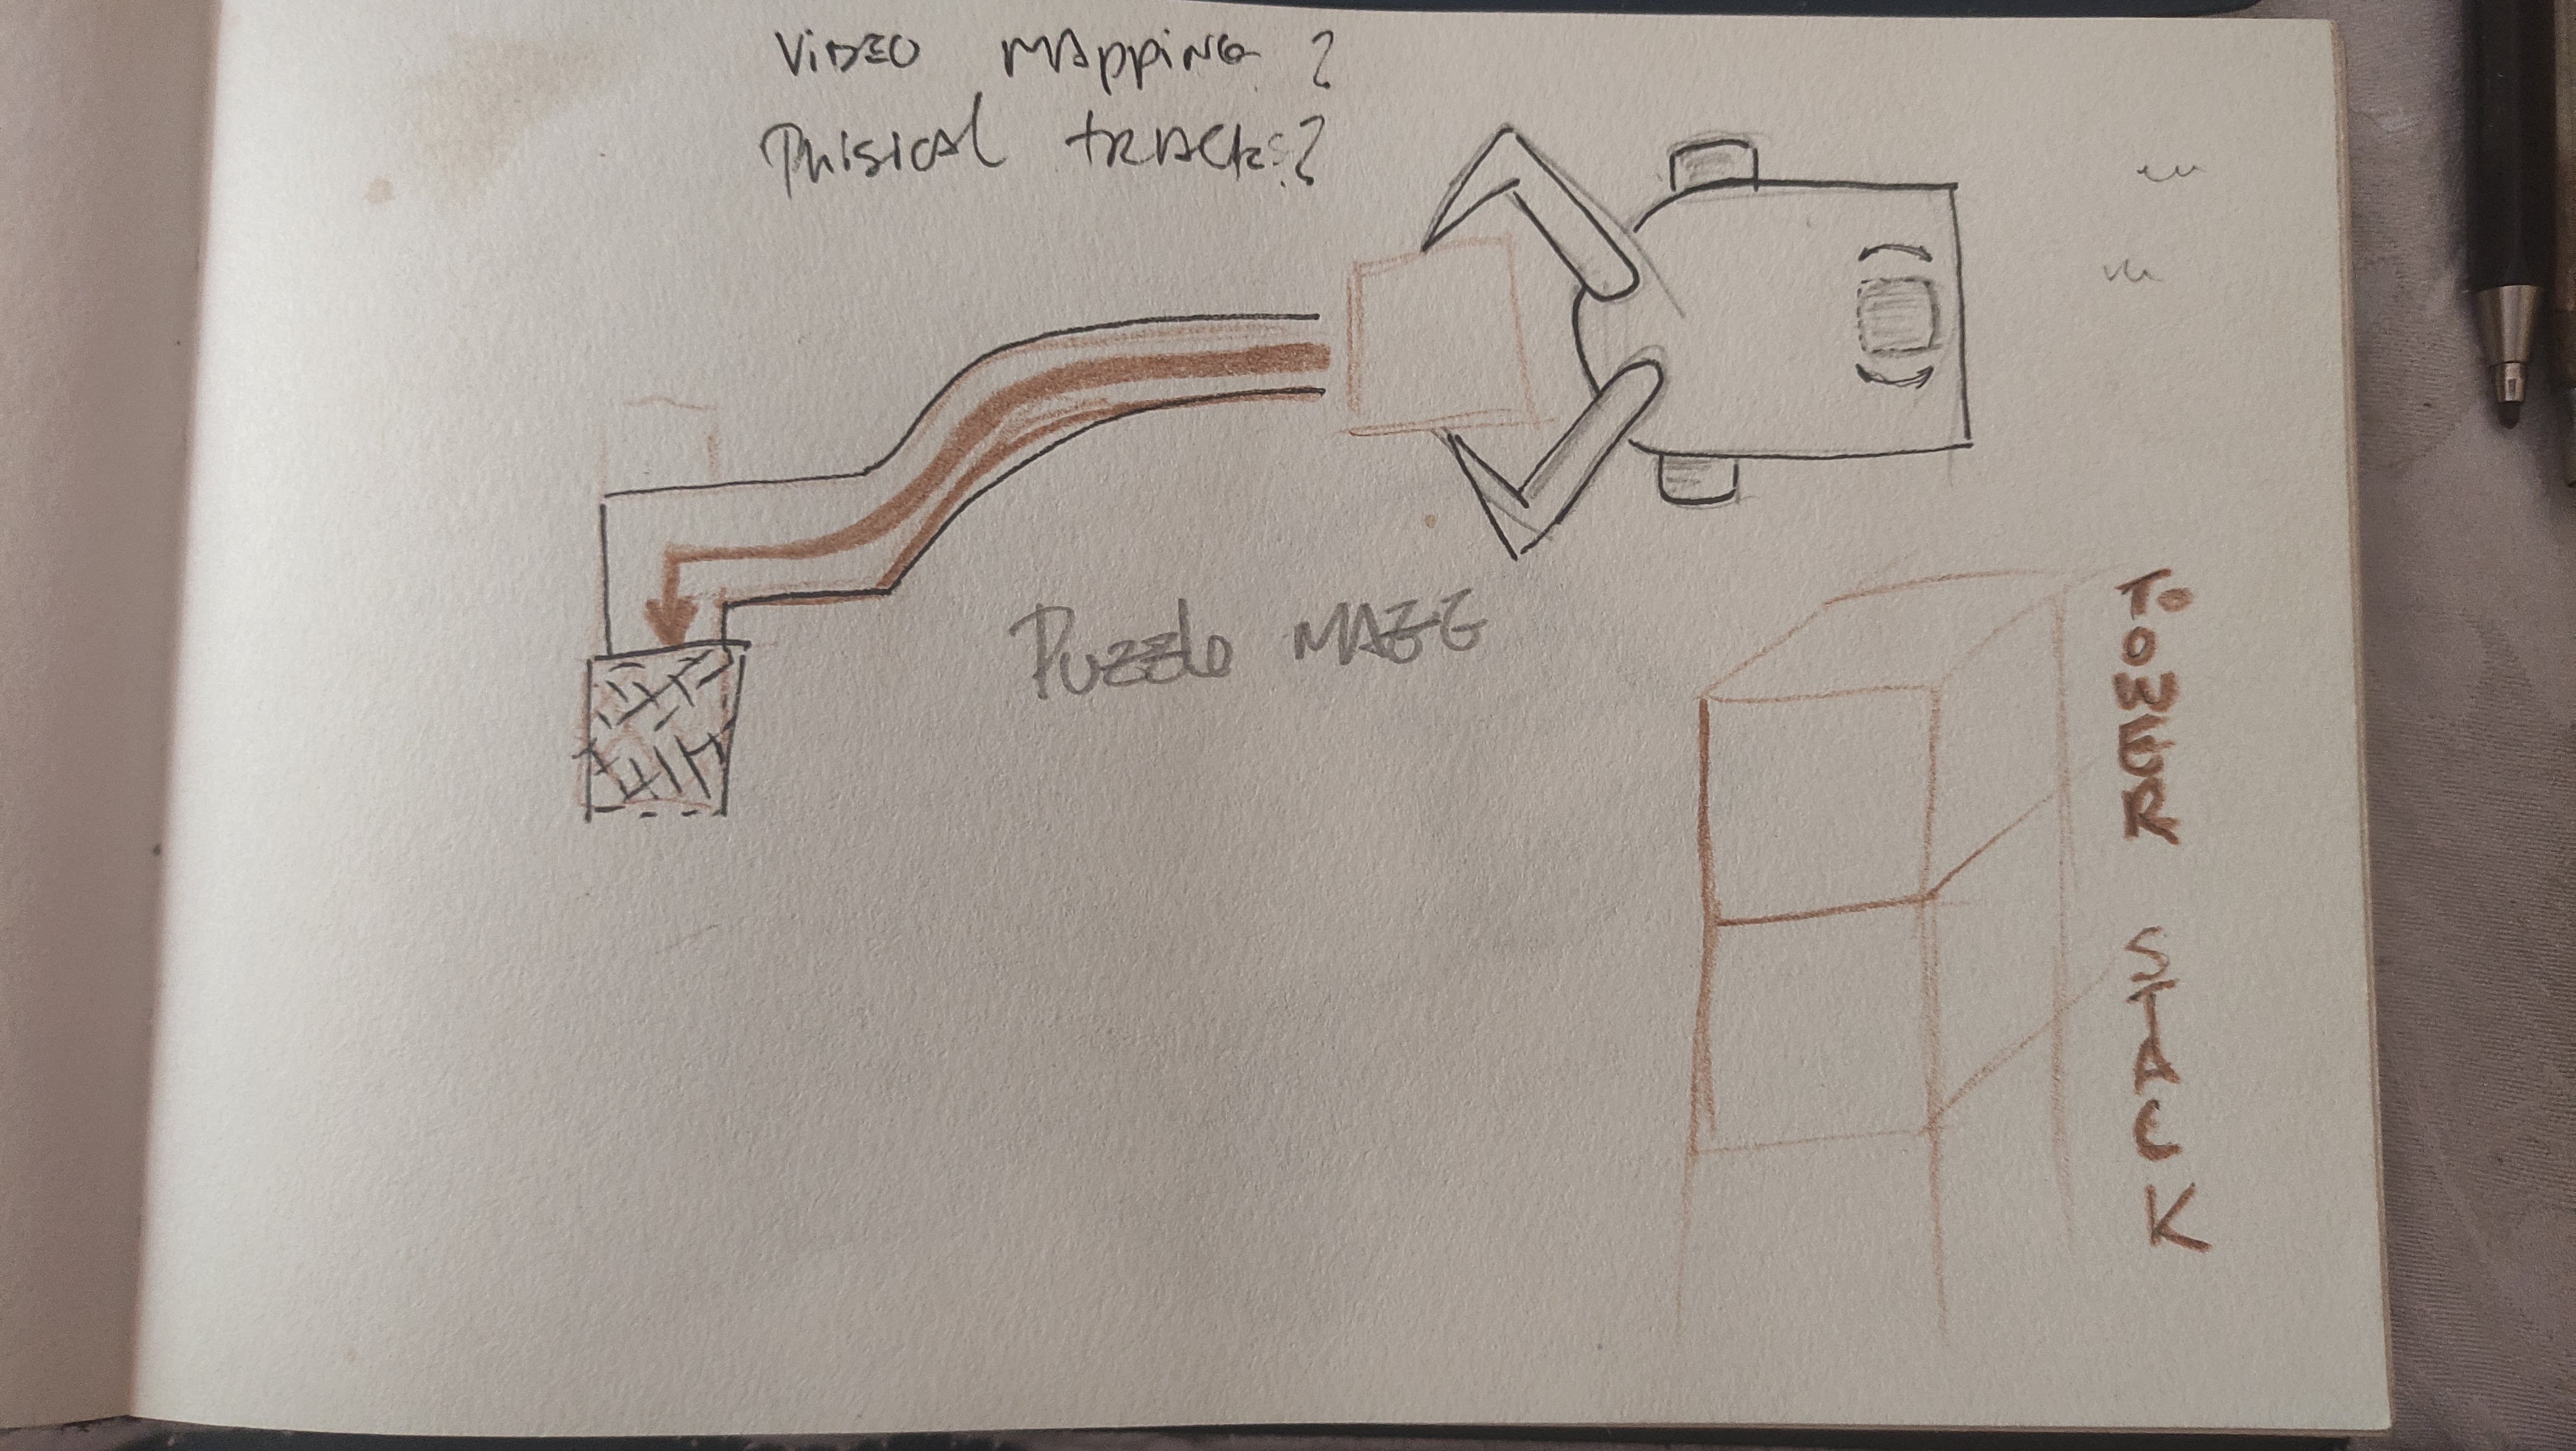 ViDEO MAppiNG ?
Phisical tRACk?
Puzzle MAZE
TOWER STACK